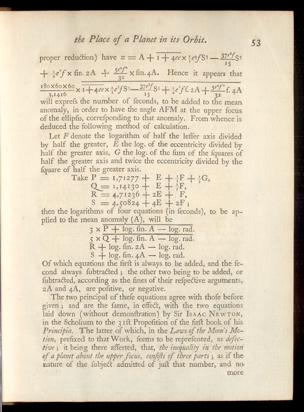 the Place of a Planet in its Orbit. 53
proper reduction) have z = A + 1 + 4ee × ¼e²fS³ — 
+ ¼e²f × ſin. 2A + 5e⁴f/32 × ſin.4A. Hence it appears that
180×60×60/3,1416 × 1+4ee×¼e²fS³— S⁵ + ¼e²f ſ. 2A + 5e⁴f/32 ſ. 4A
will expreſs the number of ſeconds, to be added to the mean
anomaly, in order to have the angle AFM at the upper focus
of the ellipſis, correſponding to that anomaly. From whence is
deduced the following method of calculation.
Let F denote the logarithm of half the leſſer axis divided
by half the greater, E the log. of the eccentricity divided by
half the greater axis, G the log. of the ſum of the ſquares of
half the greater axis and twice the eccentricity divided by the
ſquare of half the greater axis.
Take P = 1,71277 + E + ⅓F + ⅓G,
Q = 1,14130 + E + 
R = 4,71236 + 2E + F,
S = 4,50824 + 4E + 2F;
then the logarithms of four equations (in ſeconds), to be ap-
plied to the mean anomaly (A), will be
3 × P + log. ſin. A — log. rad.
5 × Q + log. ſin. A — log. rad.
R + log. ſin. 2A — log. rad.
S + log. ſin. 4A — log. rad.
Of which equations the firſt is always to be added, and the ſe-
cond always ſubtracted; the other two being to be added, or
ſubtracted, according as the ſines of their reſpective arguments,
2A and 4A, are poſitive, or negative.
The two principal of theſe equations agree with thoſe before
given; and are the ſame, in effect, with the two equations
laid down (without demonſtration) by Sir ISAAC NEWTON,
in the Scholium to the 31ſt Propoſition of the firſt book of his
Principia. The latter of which, in the Laws of the Moon's Mo-
tion, prefixed to that Work, ſeems to be repreſented, as defec-
tive; it being there aſſerted, that, the inequality in the motion
of a planet about the upper focus, conſiſts of three parts; as if the
nature of the ſubject admitted of juſt that number, and no
more